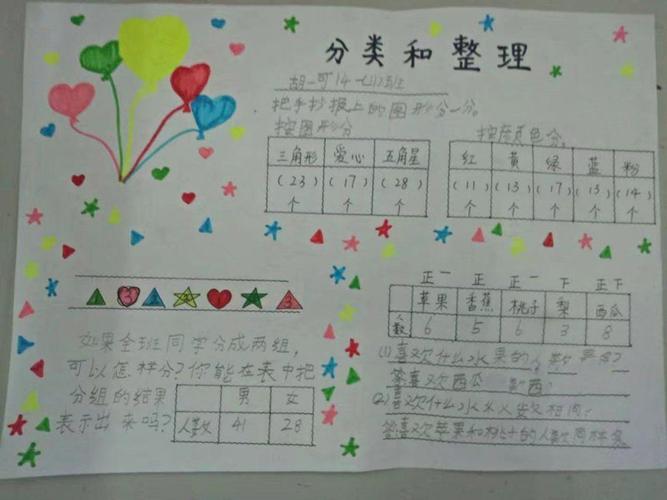 分类和整理
把手抄报上的图形分一分。
按图形分
按颜色分。
三角形 爱心 五角星
(23)个 (17)个 (28)个
红 黄 绿 蓝 粉
(11)个 (13)个 (17)个 (13)个 (14)个
1 3 2 2 1 3
如果全班同学分成两组,
可以怎样分?你能在表中把
分组的结果
表示出来吗?
男 女
人数 41 28
正一 正 正一 下 正下
苹果 香蕉 桃子 梨 西瓜
人数 6 5 6 3 8
(1)喜欢什么水果的人数最多?
答喜欢西瓜
(2)喜欢什么水 人数相同?
答喜欢苹果和桃子的人数同样多